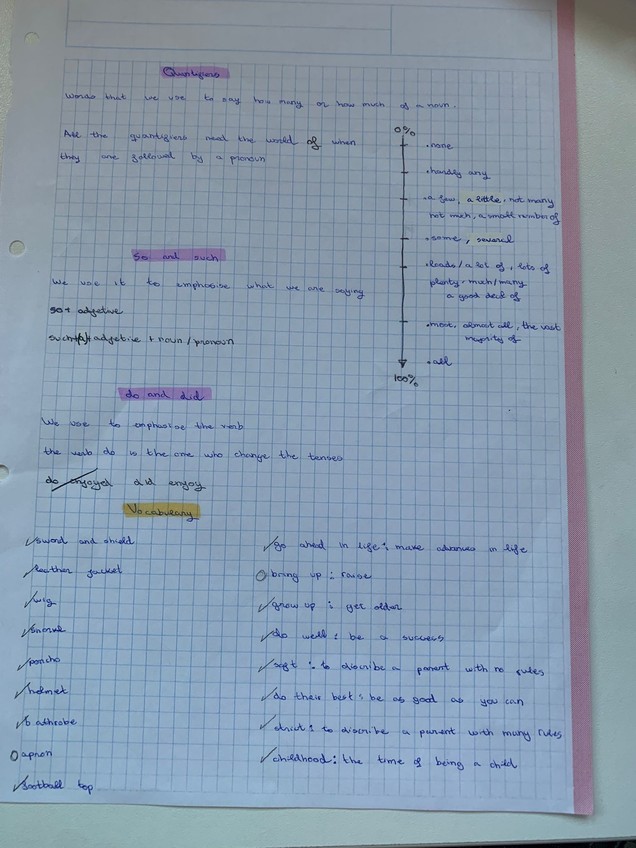 Quantifiers
Words that we use to say how many or how much of a noun.
All the quantifiers need the world of when
they are followed by a pronoun
0%
•none
•hardly any
•a few, a little, not many
not much, a small number of
•some, several
•loads/a lot of, lots of
plenty, much/many
a good deal of
•most, almost all, the vast
majority of
•all
100%
So and such
We use it to emphasise what we are saying
so + adjetive
such+(a)+ adjetive + noun / pronoun
do and did
We use to emphasise the verb
the verb do is the one who change the tenses
do enjoyed did enjoy
Vocabulary
sword and shield
leather jacket
wig
poncho
helmet
bathrobe
apron
football top
go ahed in life: make advances in life
bring up: raise
grow up: get older
do well: be a success
soft: to discribe a parent with no rules
do their best: be as good as you can
strict: to discribe a parent with many rules
childhood: the time of being a child